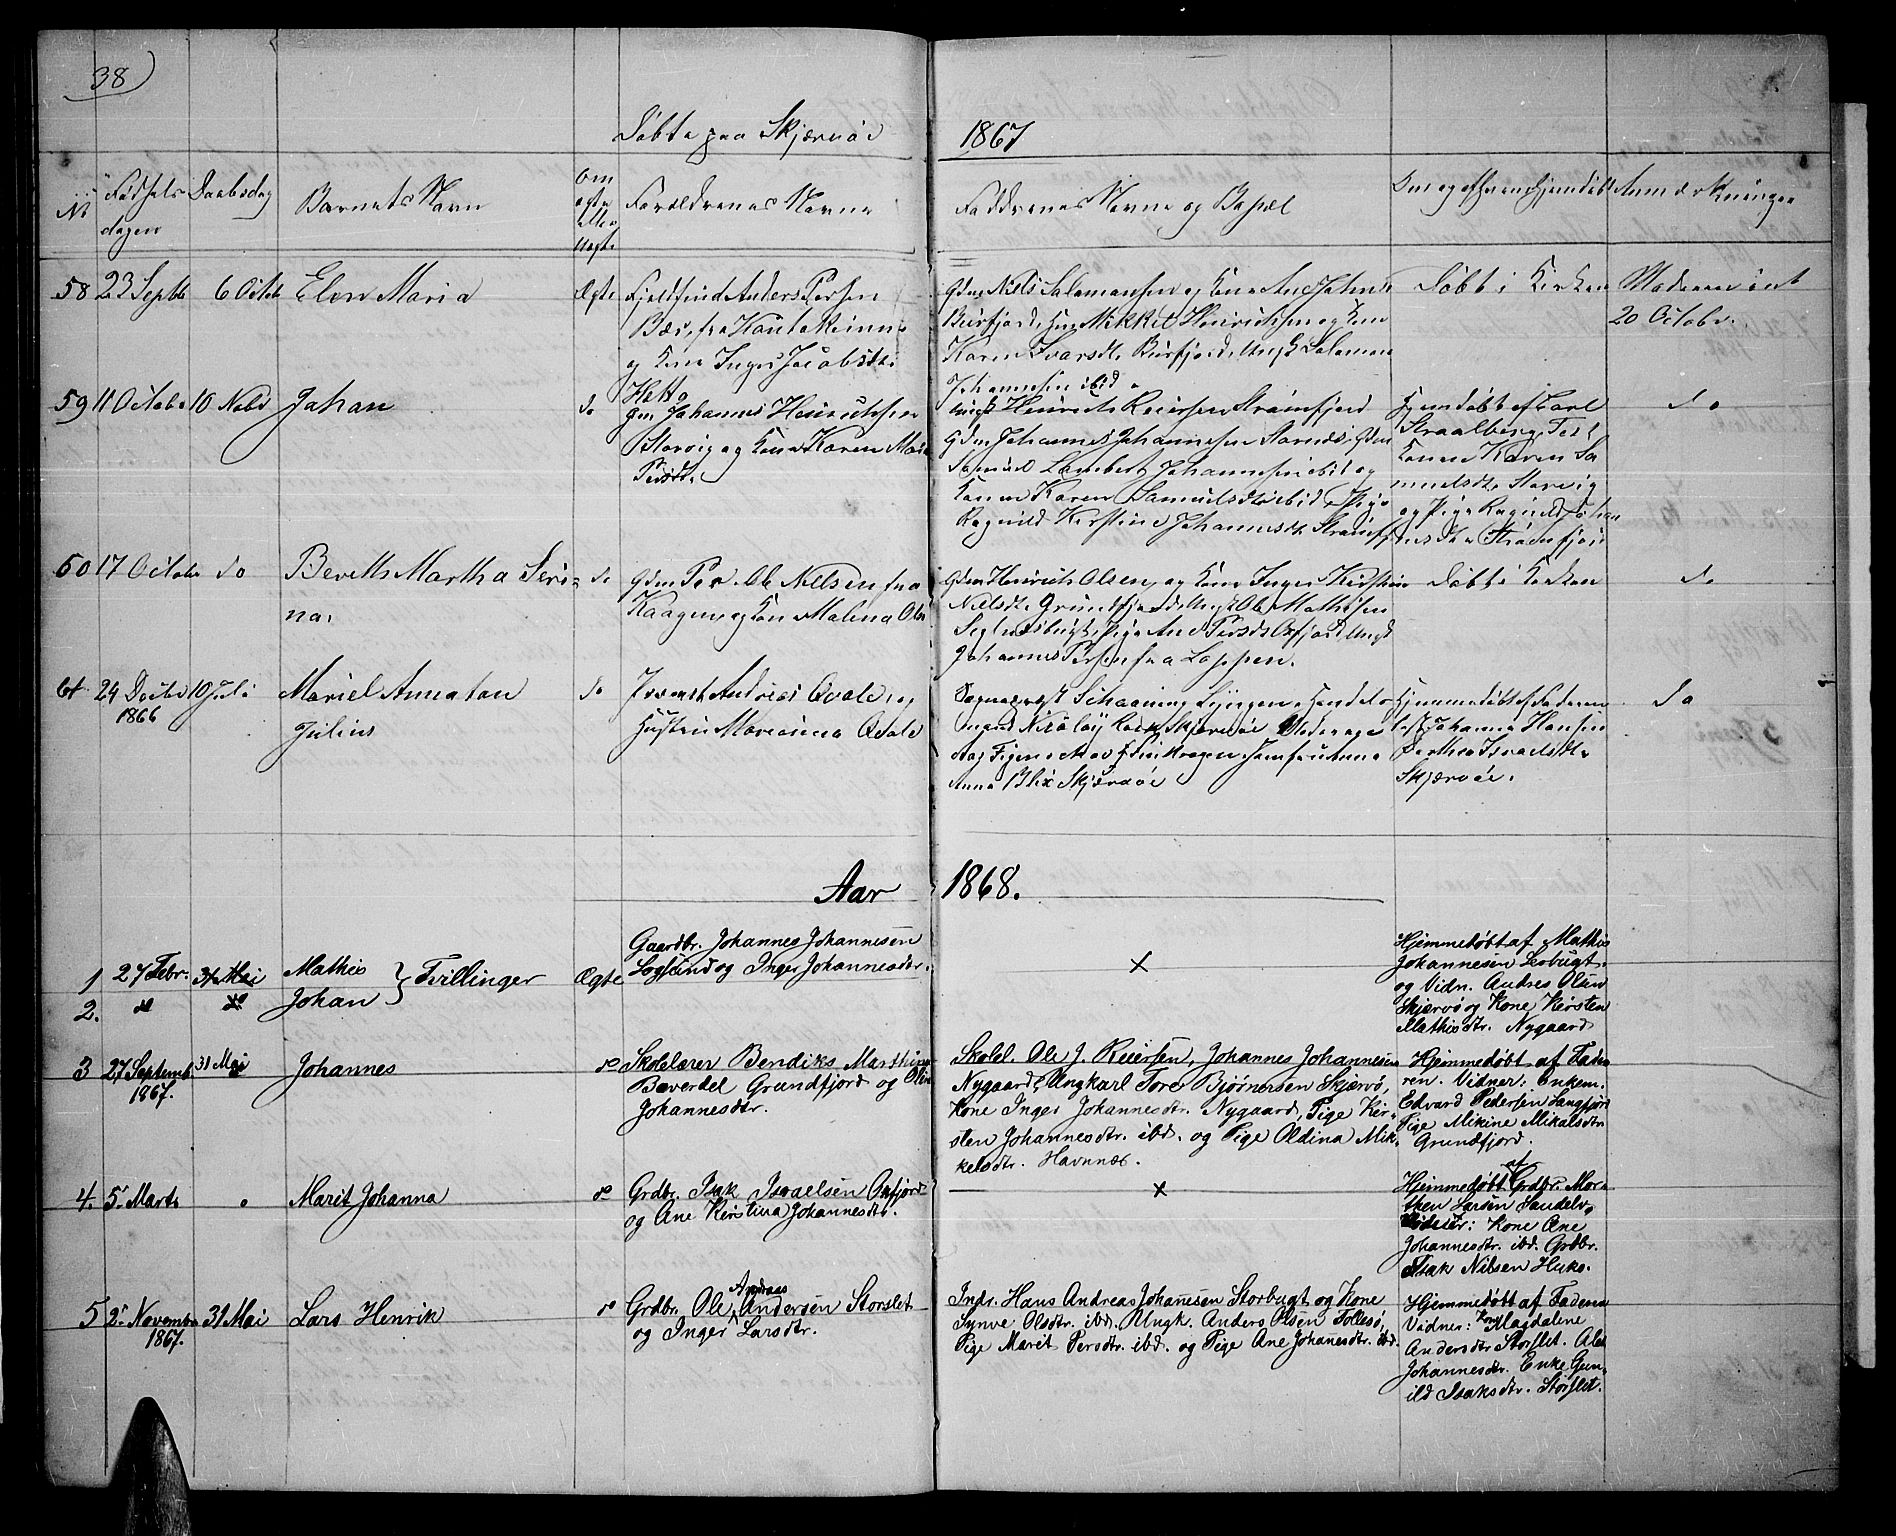 38)
Døbte paa Skjærvöe
1867
No
Fødsels
dagen
Daabsdag
Barnets Navn
Om
ægte
eller
uægte
Forældrenes Navne
Faddrenes Navne og Bopæl
Om og af hvem hjemdøbt
Anmærkninger
58 23 Septb 6 Octob Elen Maria
Ægte
Fjeldfind Anders Persen
Bær, fra Kautokeino
og Kone Inger Jacobsdtr
Hetta
Gdm Niels Salamonsen og Kone Ane
Burfjord, Gm Mikkel Henriksen og Kone
Karen Ivarsdtr Burfjord, Ungk Salamon
Johannesen ibid
Døbt i Kirken
Moderen int
20 Octobr.
59 11 Octobr 10 Novb Johan
do
Gm Johannes Henriksen
Storvig og Kone Karen Marie
Persdt.
Ungk Henrik Reiersen Strömfjord
Gdm Johannes Johannesen
Lambert Johannesen ibid og
Kone Karen Samuelsdtr ibid, Pige
Ragnild Kirstine Johannesdt Strömfj
Hjemdøbt af Carl
Straalberg, Test
Konen Karen Sa
muelsdtr Storvig
og Pige Ragnild Johan
nesdtr Strömfjord
do
60 17 Octobr do Berith Martha Seri-
na.
do
Gdm Per Ole Nielsen fra
Kaagen og Kone Malena Olsd
Gdm Henrich Olsen og Kone Inger Kirstine
Nielsdtr Grundfjord, Ungk Ole Mathisen
Pige Ane Persdt Oxfjord, Ungk
Johannes Persen fra Loppen.
Døbt i Kirken
do
61 24 Decbr 10 Juli Mariel Annatan
1866
Julius
do
Provst Andreas Qvale, og
Hustru Marianna Qvale
Sogneprest Schaaning Lyngen, Handels
mand Nicolay Skjærvöe
Jomfru Anna
Anna Blix Skjærvöe
Hjemmedøbt af Faderen
Test Johanna Hansen
Berthea Israelsdtr
Skjærvöe.
do
Aar 1868.
1 27 Febr. 31 Mai Mathis
2. do do Johan } Tvillinger Ægte
Gaardbr. Johannes Johannesen
Loglund og Inger Johannesdtr.
×
Hjemmedøbt af Mathis
Johannesen Leobugt
og Vidn. Andres Olsen
Skjærvö og Kone Kirsten
Mathisdtr. Nygaard
3 27 Septemb. 31 Mai Johannes
1867.
do
Skolelærer Bendiks Marthin
Bæverdel Grundfjord og Oline
Johannesdtr.
Skolel. Ole J. Reiersen, Johannes Johannesen
Nygaard, Ungkarl Tore Bjørnersen Skjærvö,
Kone Inger Johannesdtr. Nygaard, Pige Kir-
sten Johannesdtr. ibd. og Pige Oldina Mik-
kelsdtr. Havnnæs.
Hjemmedøbt af Fade-
ren. Vidner: Enkem.
Edvard Pedersen Langfjord
Pige Mikine Mikalsdtr
Grundfjord.
4. 5. Marts " Marit Johanna
do
Grdbr. Isak Israelsen Oxfjord
og Ane Kirstina Johannesdtr.
×
Hjemmedøbt af Grdbr. Mor-
then Larsen Sandelv.
Vidner: Kone Ane
Johannesdtr. ibd. Grdbr.
Isak Nilsen Huko.
5 2. Novembr 31 Mai Lars Henrik
1867.
do
Grdbr. Ole Andreas Andersen Storslet
og Inger Larsdtr.
Indr. Hans Andreas Johanesen Storbugt og Kone
Synve Olsdtr. ibd. Ungk. Anders Olsen Follesö,
Pige Marit Persdtr. ibd. og Pige Ane Johanesdtr. ibd.
Hjemmedøbt af Faderen
Vidner: Kone Magdalene
Andersdtr Storslet. Ale
Johannesdtr. Enke Gun-
ild Isaksdtr. Storslet.